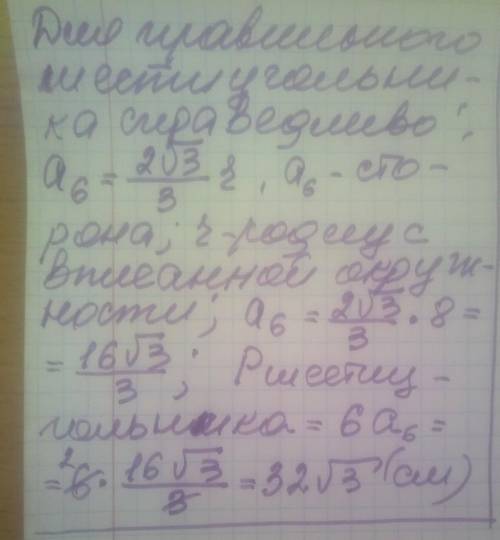 Для правильного
шестиугольни-
ка справедливо:
a₆ = 2√3/3 r, a₆ - сто-
рона; r - радиус
вписанной окруж-
ности; a₆ = 2√3/3 · 8 =
= 16√3/3; Pшестиу-
гольника = 6a₆ =
= 6² · 16√3/3 = 32√3 (см)